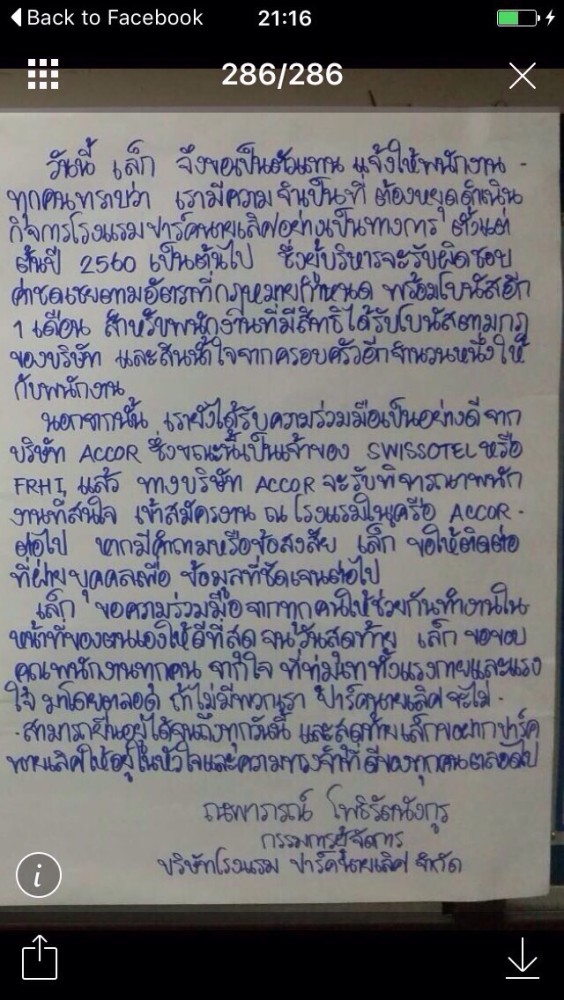 Back to Facebook
21:16
286/286
วันนี้ เล็ก จึงขอเป็นตัวแทน แจ้งให้พนักงาน -
ทุกคนทราบว่า เรามีความจำเป็นที่ ต้องหยุดดำเนิน
กิจการโรงแรมปาร์คนายเลิศอย่างเป็นทางการ ตั้งแต่
ต้นปี 2560 เป็นต้นไป ซึ่งผู้บริหารจะรับผิดชอบ
ค่าชดเชยตามอัตราที่กฎหมายกำหนด พร้อมโบนัสอีก
1 เดือน สำหรับพนักงานที่มีสิทธิได้รับโบนัสตามกฎ
ของบริษัท และสินน้ำใจจากครอบครัวอีกจำนวนหนึ่งให้
กับพนักงาน
นอกจากนั้น เรายังได้รับความร่วมมือเป็นอย่างดีจาก
บริษัท ACCOR ซึ่งขณะนี้เป็นเจ้าของ SWISSOTEL หรือ
FRHI แล้ว ทางบริษัท ACCOR จะรับพิจารณาพนัก
งานที่สนใจ เข้าสมัครงาน ณ โรงแรมในเครือ ACCOR -
ต่อไป หากมีคำถามหรือข้อสงสัย เล็ก ขอให้ติดต่อ
ที่ฝ่ายบุคคลเพื่อ ข้อมูลที่ชัดเจนต่อไป
เล็ก ขอความร่วมมือจากทุกคนให้ช่วยกันทำงานใน
หน้าที่ของตนเองให้ดีที่สุด จนวันสุดท้าย เล็ก ขอขอบ
คุณพนักงานทุกคน จากใจ ที่ทุ่มเททั้งแรงกายและแรง
ใจ มาโดยตลอด ถ้าไม่มีพวกเรา ปาร์คนายเลิศจะไม่ -
- สามารถยืนอยู่ได้จนถึงทุกวันนี้ และสุดท้ายเล็กขอฝากปาร์ค
นายเลิศให้อยู่ในหัวใจและความทรงจำที่ดีของทุกคนตลอดไป
ณพาภรณ์ โพธิรัตนังกูร
กรรมการผู้จัดการ
บริษัทโรงแรม ปาร์คนายเลิศ จำกัด